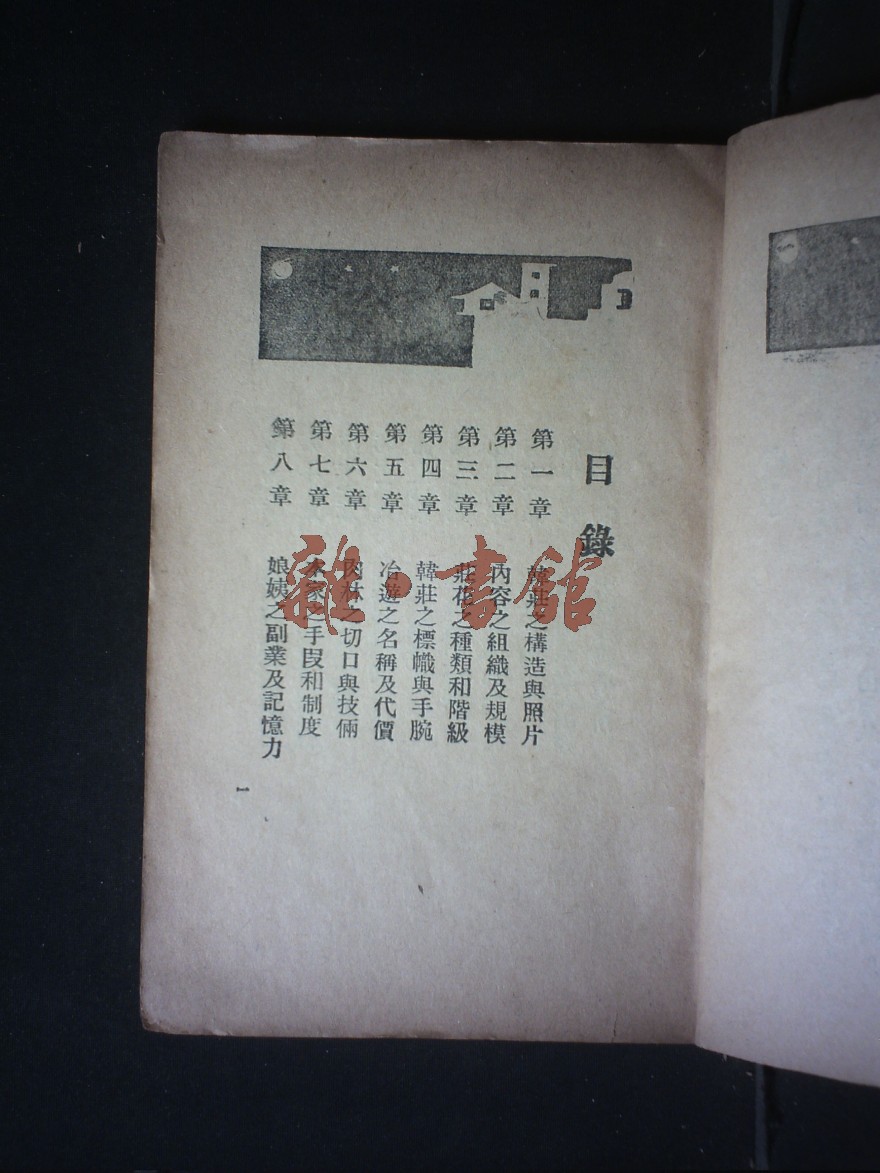 目錄
第一章 韓莊之構造與照片
第二章 內容之組織及規模
第三章 莊花之種類和階級
第四章 韓莊之標幟與手腕
第五章 冶遊之名稱及代價
第六章 肉林之切口與技倆
第七章 本家之手段和制度
第八章 娘姨之副業及記憶力
一
雜·書館